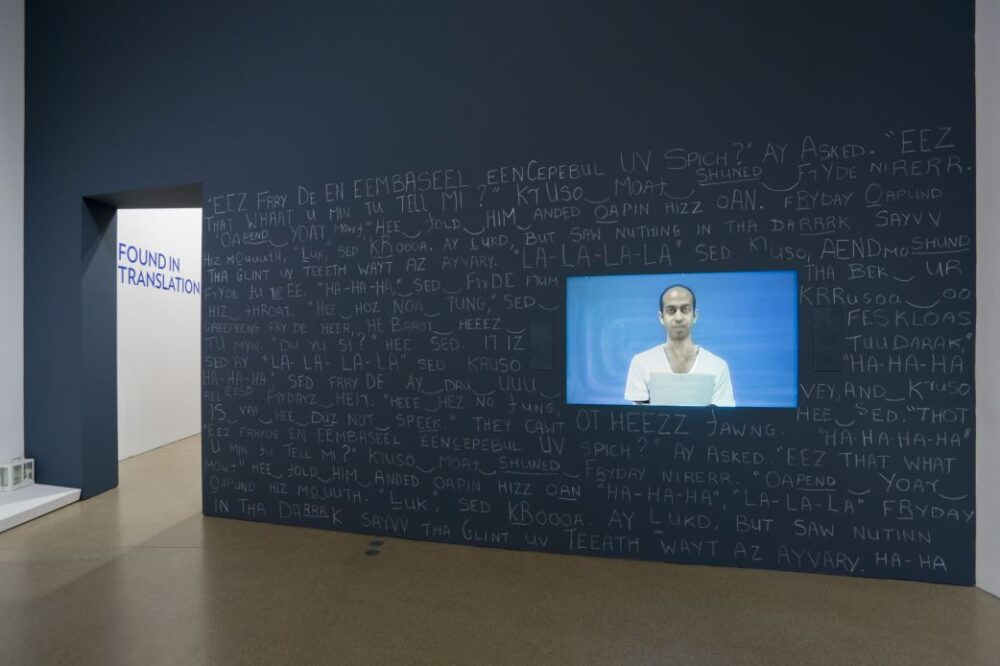 FOUND IN
TRANSLATION
"EEZ FRRY DE EN EEMBASEEL EENCEPEBUL UV SPICH?" AY ASKED. "EEZ
THAT WHAAT U MIN TU TELL MI?" KRUSO MOAT SHUNED FRYDE NIRERR.
"OAPEND YOAT MOWT" HEE JOLD HIM ANDED OAPIN HIZZ OAN. FRYDAY OAPUND
HIZ MOUUTH. "LUK," SED KROOOA. AY LUKD, BUT SAW NUTHING IN THA DARRRK SAYVV
THA GLINT UV TEETH WAYT AZ AYVARY. "LA-LA-LA-LA" SED KRUSO, AENDMO SHUND
FRYDE TU "HA-HA-HA", SED FRYDE FRUM THA BEK UR
HIZ THROAT. "HEE HOZ NOO TUNG," SED KRRUSOO OO
GREEPEENG FRY DE HEER. HE BAROT HEEEZ FESKLOAS
TU MYN. "DU YU SI?" HEE SED. IT IZ TUUDARAK."
SED AY. "LA-LA-LA-LA" SED KRUSO "HA-HA-HA"
HA-HA-HA". SED FRRYDE AY DRU UUU VEY, AND KRUSO
FRYDAYZ "HEEE HEZ NO TUNG, HEE SED. "THOT
IS VAI HEE DUZ NOT SPEEK." THEY CAWT OT HEEZZ JAWNG. "HA-HA-HA-HA"
"EEZ FRAYDE EN EEMBASEEL EENCEPEBUL UV SPICH?" AY ASKED. "EEZ THAT WHAT
U MIN TU TELL MI?" KRUSO MOAT SHUNED FRYDAY NIRERR. "OAPEND YOAR
MOWT" HEE JOLD HIM ANDED OAPIN HIZZ OAN "HA-HA-HA", "LA-LA-LA" FRYDAY
OAPUND HIZ MOUUTH. "LUK", SED KROOOA. AY LUKD, BUT SAW NUTINN
IN THA DARRRK SAYVV THA GLINT UV TEEATH WAYT AZ AYVARY. HA-HA